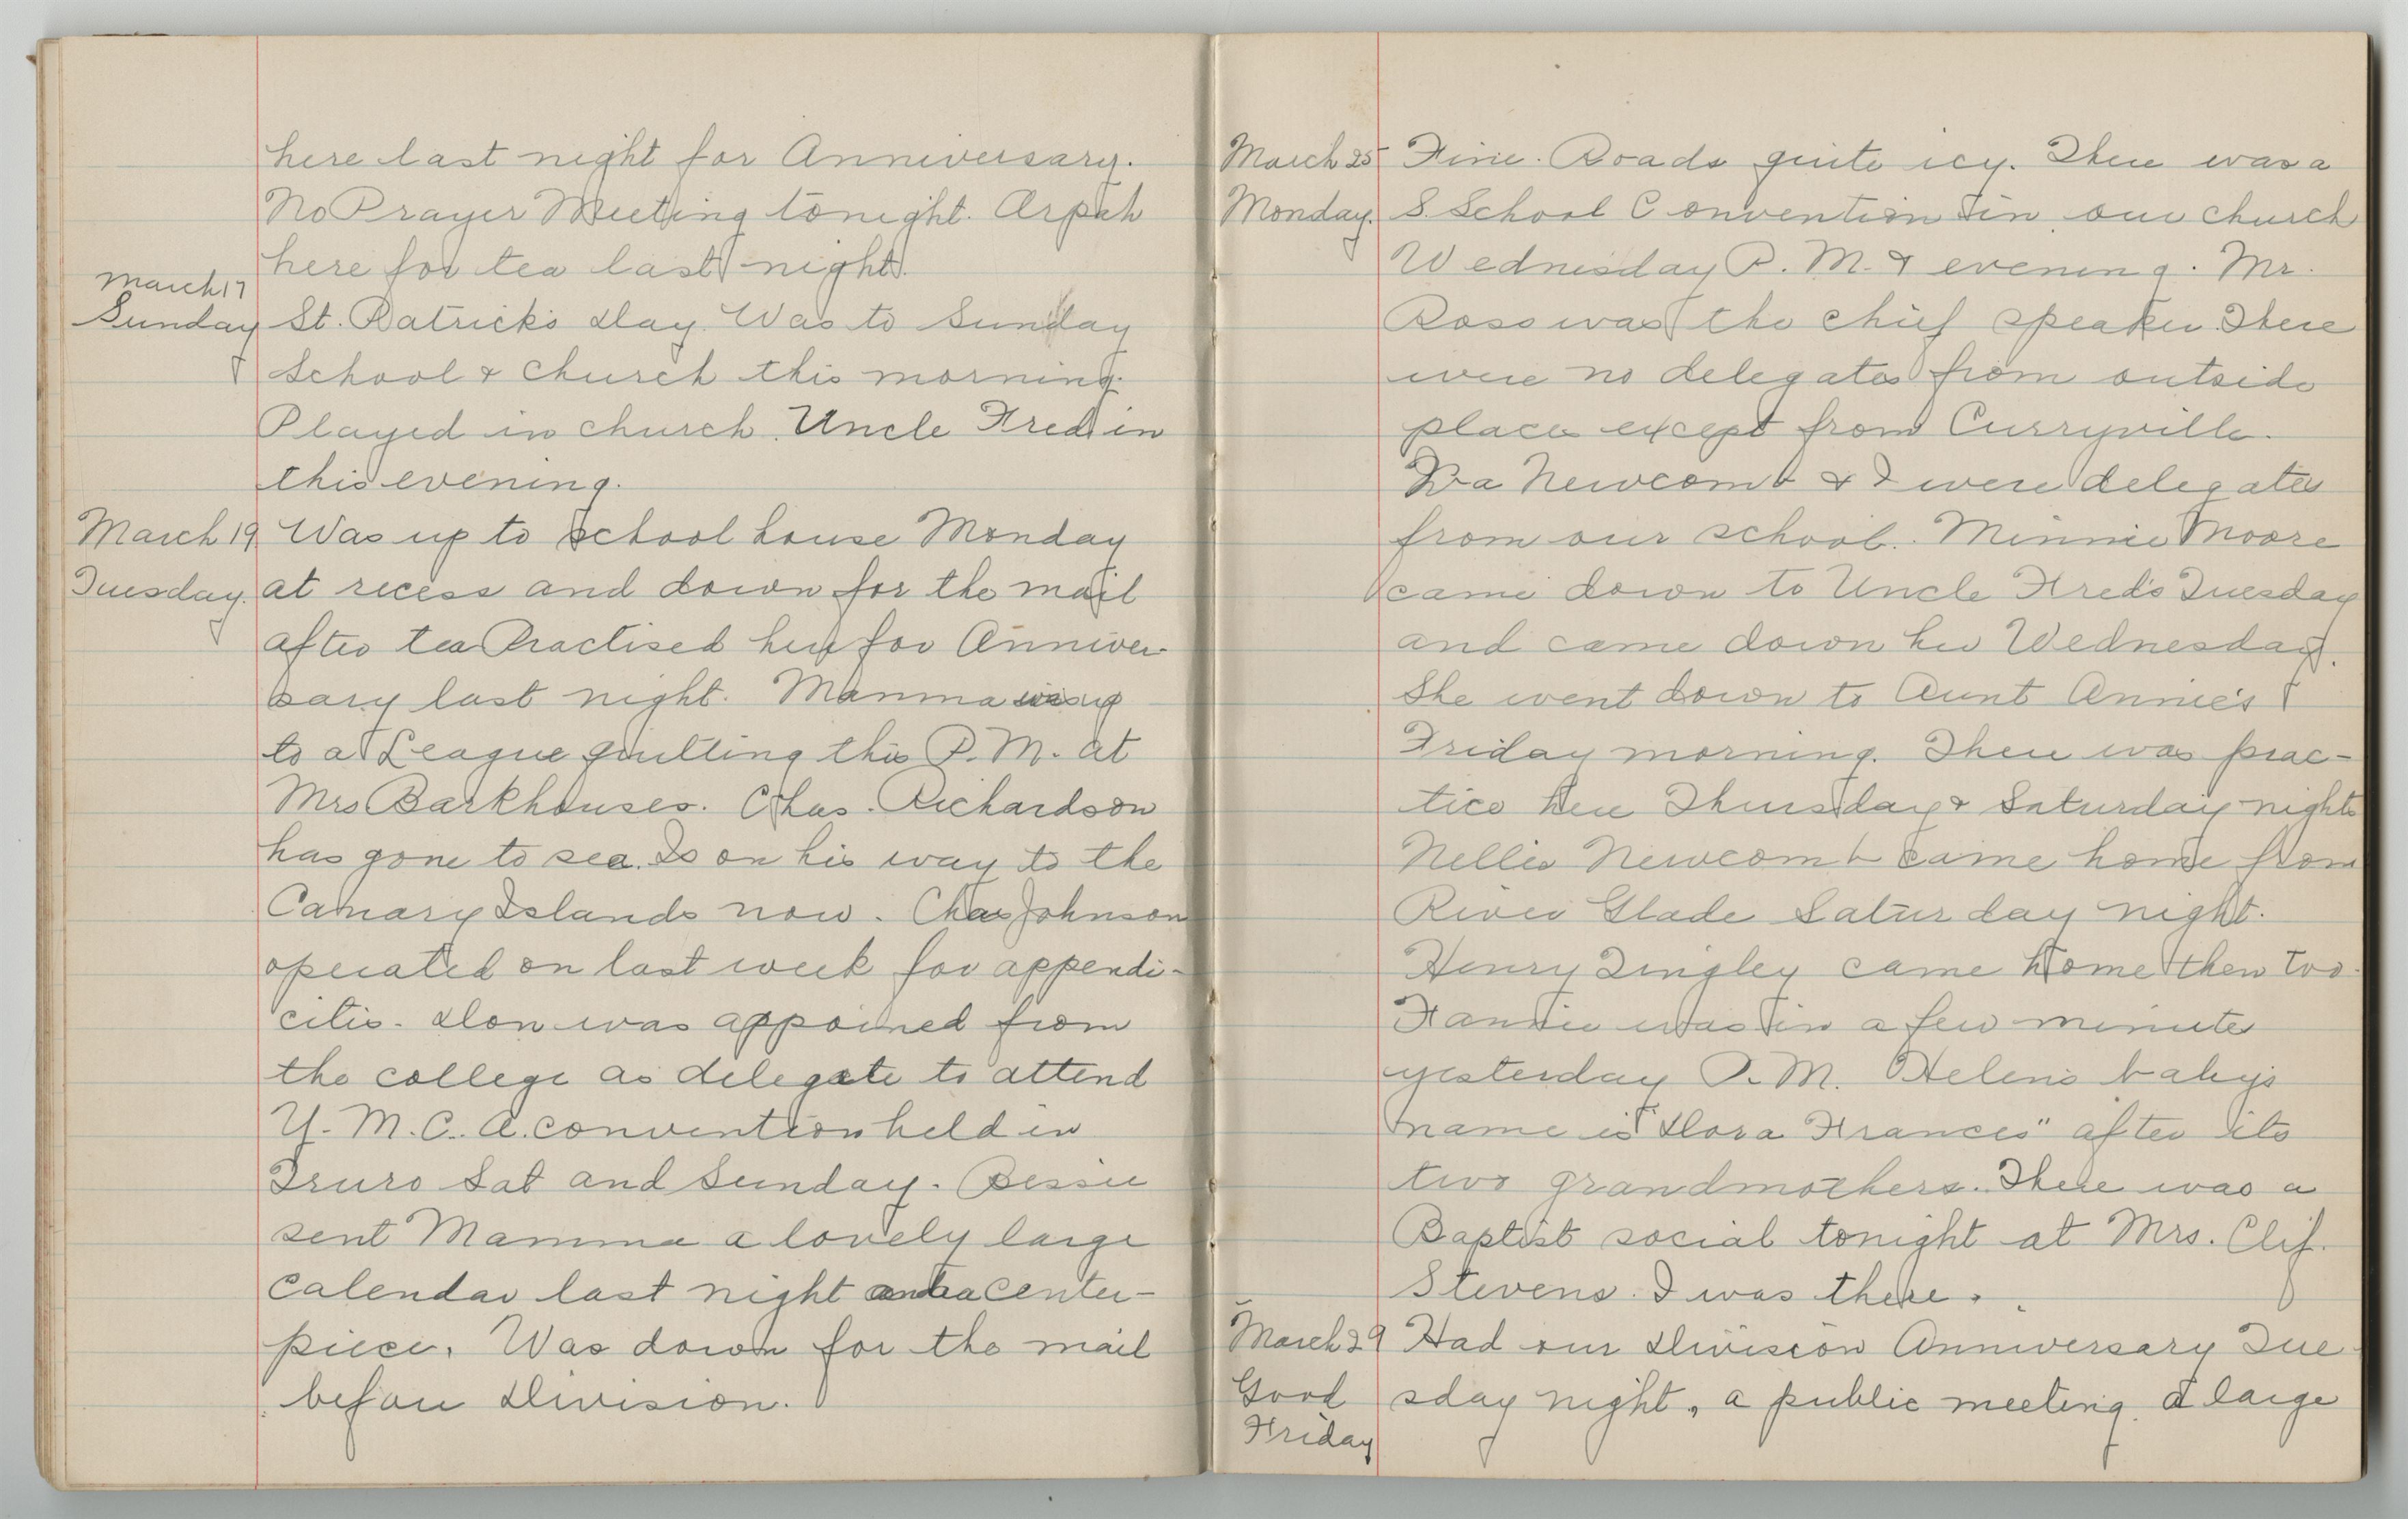 here last night for Anniversary.
No Prayer Meeting tonight. Arpah
here for tea last night.
March 17
Sunday
St. Patrick's Day. Was to Sunday
School & church this morning.
Played in church. Uncle Fred in
this evening.
March 19
Tuesday.
Was up to school house Monday
at recess and down for the mail
after tea Practised here for Anniver-
sary last night. Mamma was up
to a League quilting this P.M. at
Mrs Barkhouses. Chas. Richardson
has gone to sea. Is on his way to the
Canary Islands now. Chas Johnson
operated on last week for appendi-
citis. Don was appoined from
the college as delegate to attend
Y. M. C. A. convention held in
Truro Sat and Sunday. Bessie
sent Mamma a lovely large
calendar last night and a center-
piece. Was down for the mail
before Division.
March 25
Monday.
Fine. Roads quite icy. There was a
S. School Convention in our church
Wednesday P. M. & evening. Mr.
Ross was the chief speaker. There
were no delegates from outside
places except from Curryville.
Newcomb & I were delegates
from our school. Minnie Moore
came down to Uncle Fred's Tuesday
and came down here Wednesday.
She went down to Aunt Annie's
Friday morning. There was prac-
tice here Thursday & Saturday nights
Nellie Newcomb came home from
River Glade Saturday night.
Henry Tingley came home then too.
Fannie was in a few minutes
yesterday P. M. Helen's baby's
name is "Dora Frances" after its
two grandmothers. There was a
Baptist social tonight at Mrs. Clif.
Stevens. I was there.
March 29
Good
Friday
Had our Division Anniversary Tue-
sday night, a public meeting. A large